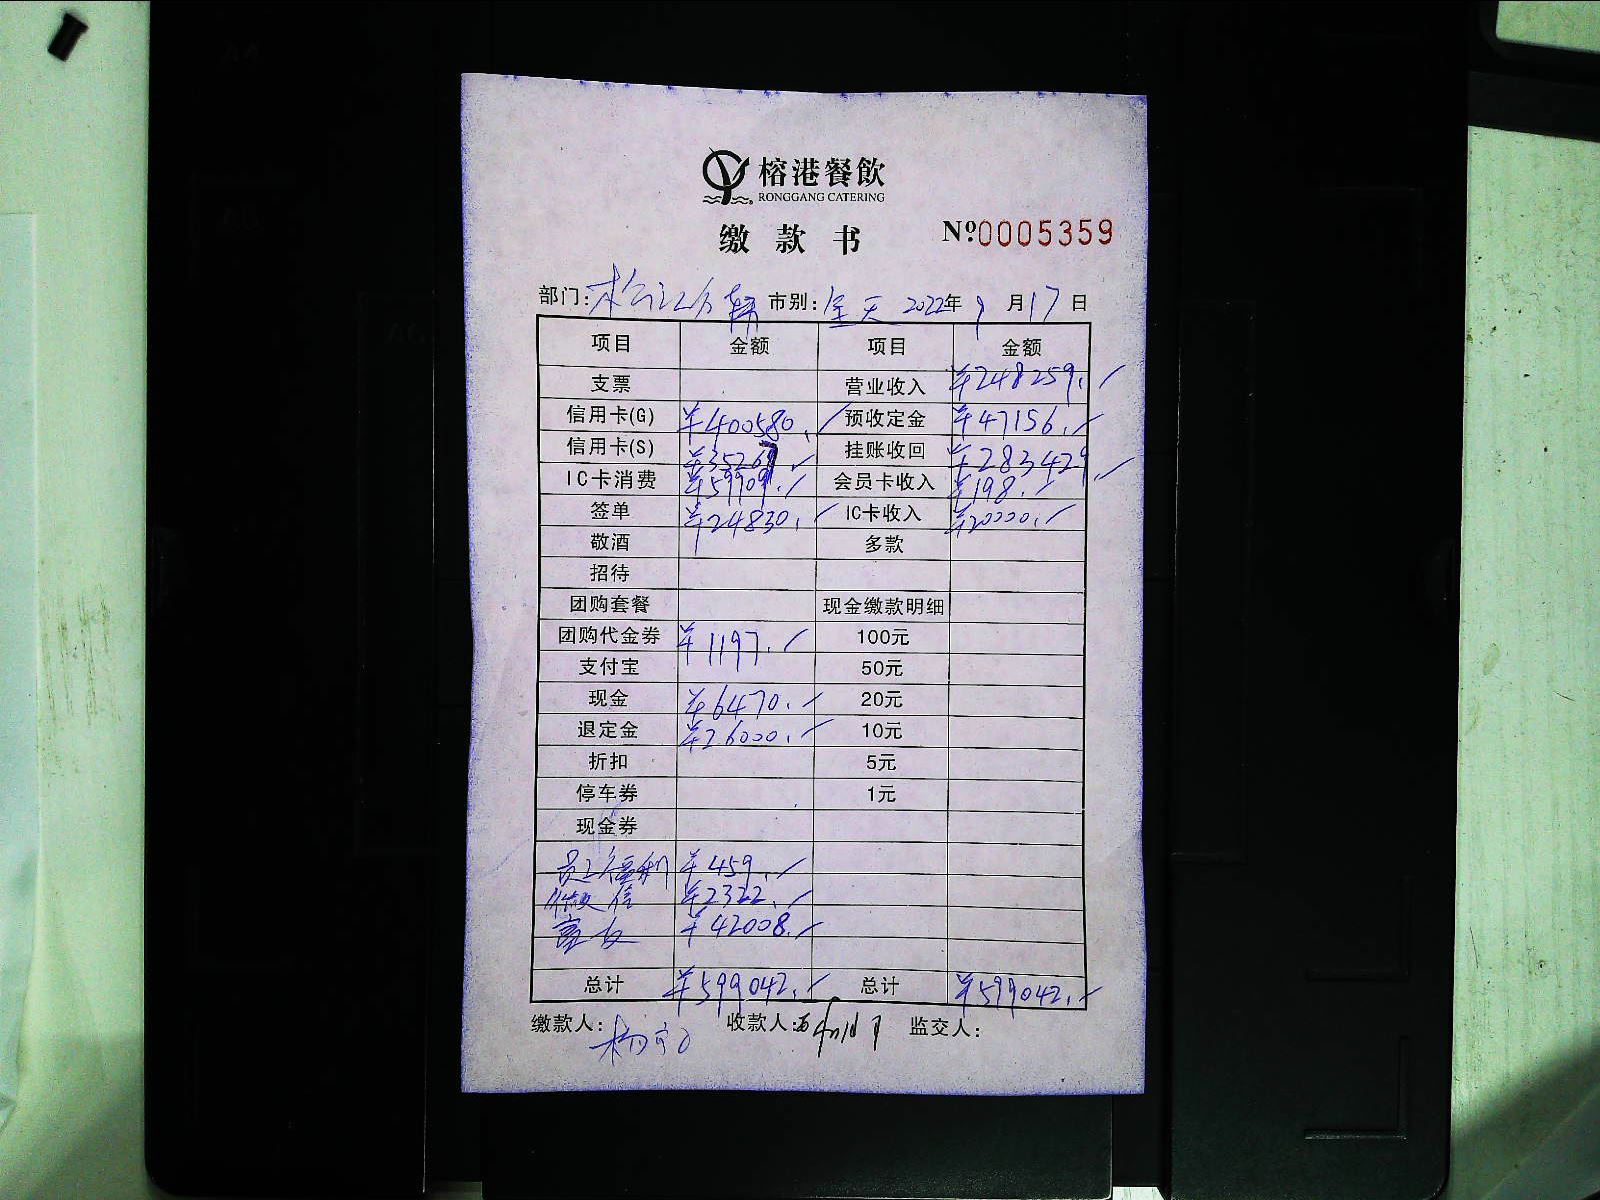 榕港餐飲
RONGGANG CATERING
缴款书 №0005359
部门: 松江 市别: 全天 2022年9月17日
项目 金额 项目 金额
支票 营业收入 ¥248259.
信用卡(G) ¥400580. 预收定金 ¥47156.
信用卡(S) ¥35267. 挂账收回 ¥283429.
IC卡消费 ¥59909. 会员卡收入 ¥198.
签单 ¥24830. IC卡收入 ¥20000.
敬酒 多款
招待
团购套餐 现金缴款明细
团购代金券 ¥1197. 100元
支付宝 50元
现金 ¥6470. 20元
退定金 ¥26000. 10元
折扣 5元
停车券 1元
现金券
员工福利 ¥459.
微信 ¥2322.
富友 ¥42008.
总计 ¥599042. 总计 ¥599042.
缴款人: 收款人: 监交人: